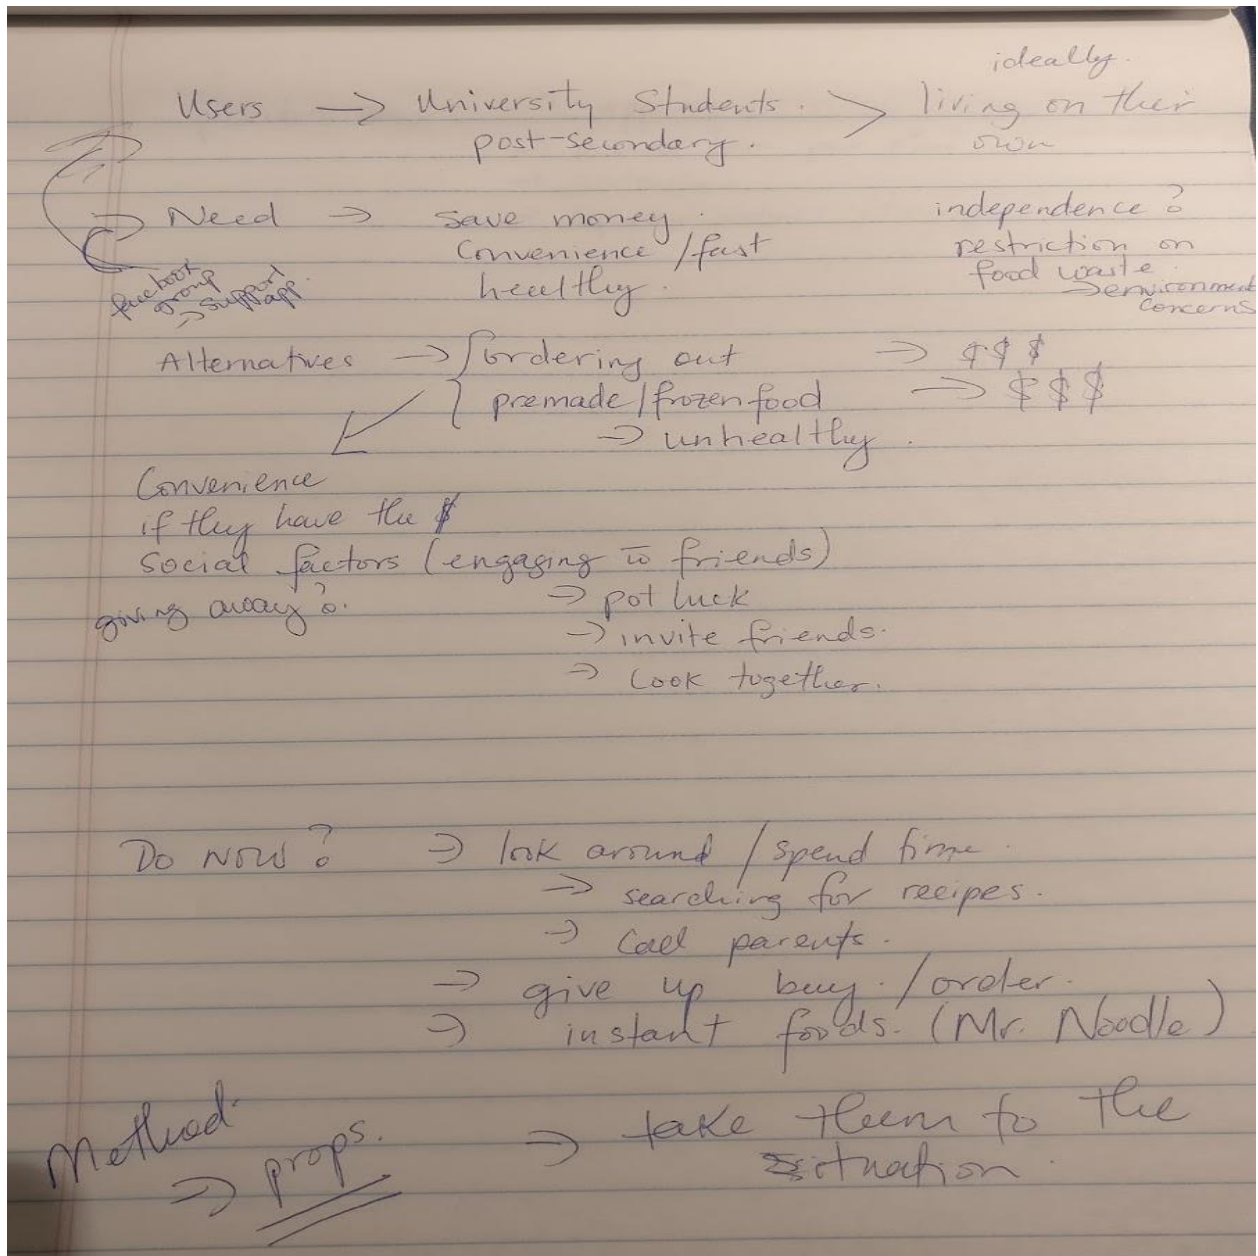 ideally.
Users → University Students. > living on their
post-secondary. own
→ Need → save money. independence?
Convenience / fast restriction on
healthy. food waste.
→ environment
concerns
facebook
group
→ support
app.
Alternatives → { ordering out → $$$
premade/frozen food → $$$
→ unhealthy.
Convenience
if they have the $
Social factors (engaging w̄ friends)
giving away?. → pot luck
→ invite friends.
→ Cook together.
Do now? → look around / spend time.
→ searching for recipes.
→ Call parents.
→ give up buy. / order.
→ instant foods. (Mr. Noodle)
Method. → take them to the
→ props. situation.